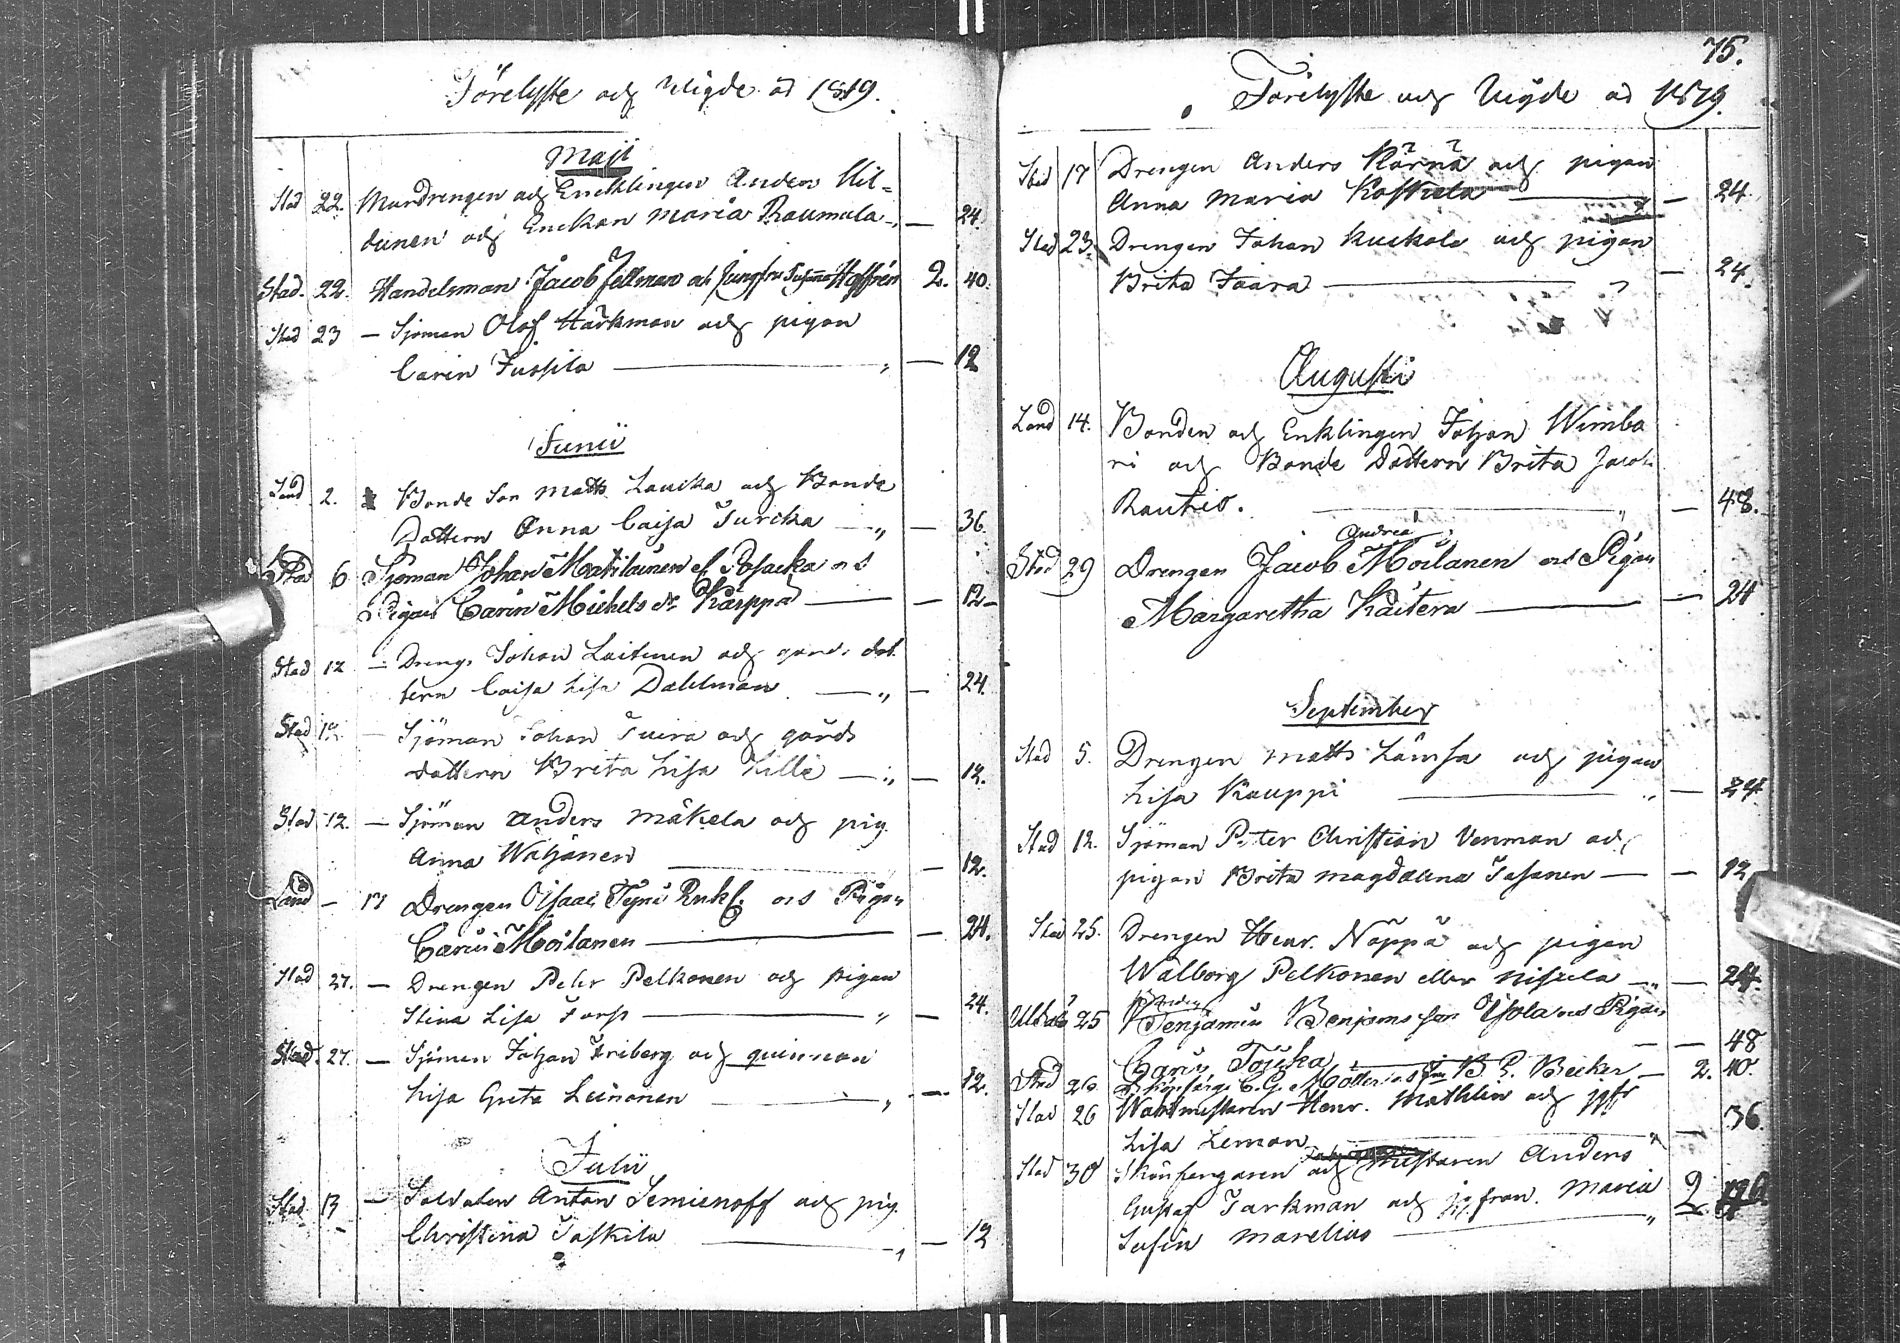 Förelyste och Wigde åd 1819.
Maji
Stad 22. Murdrengen och Encklingen Anders Hil-
dunen och Enckan Maria Raumala - — 24.
Stad. 22. Handelsman Jacob Fellman och Jungfru Susanna Hoffrén 2. 40.
Stad 23 — Sjöman Olof Härkman och pigan
Carin Jussila — 12
Junii
Land 2. Bonde Son Matts Laucka och Bonde
Dottern Anna Caisa Turcka — 36.
Stad 6 Sjöman Johan Matilainen el. Posacka och
Pigan Carin Michels dr Karppa — 12 -
Stad 12 — Dreng. Johan Laitinen och gårds dot
tern Caisa Lisa Dahlman — 24.
Stad 12. — Sjöman Johan Tuira och gårds
dottern Brita Lisa Lille — 12.
Stad 12. — Sjöman Anders Mäkela och pig.
Anna Wähänen — 12.
Land — 17 Drengen Isaac Tyni och Pigan
Carin Moilanen — 24.
Stad 27. — Drengen Pehr Pelkonen och pigan
Stina Lisa Forss — 24.
Stad. 27. — Sjöman Johan Friberg och quinnan
Lisa Greta Leinonen — 12.
Julii
Stad 13 — Soldaten Anton Semienoff och pig.
Christina Taskila — 12
75.
Förelyste och Wigde åd 1819.
Stad 17 Drengen Anders Kärnä och pigan
Anna Maria Koskela — 24.
Stad 23. Drengen Johan Kuckola och pigan
Brita Taara — 24.
Augusti
Land 14. Bonden och Enklingen Johan Wimba
ri och Bonde Dottern Brita Jacobs
Rautio. — 48.
Andreæ
Stad 29 Drengen Jacob Moilanen och Pigan
Margaretha Kaitera — 24
September
Stad 5. Drengen Matts Lämsa och pigan
Lisa Kauppi — 24.
Stad 12. Sjöman Peter Christian Venman och
pigan Brita Magdalena Tasanen — 12
Stad 25. Drengen Henr. Näppä och pigan
Walborg Pelkonen eller Niskela — 24.
Bonden
25 Benjamin Benjamsson Ysola och Pigan
Carin — 48
Stad 26 C. G. och B. Becker — 2. 40.
Stad 26 Waktmestaren Henr. Mathlin och jgfr
Lisa Zeman — 36.
Stad 30 och mestaren Anders
Gustaf Tarkman och jgfran. Maria 2.
Sofia Marelius